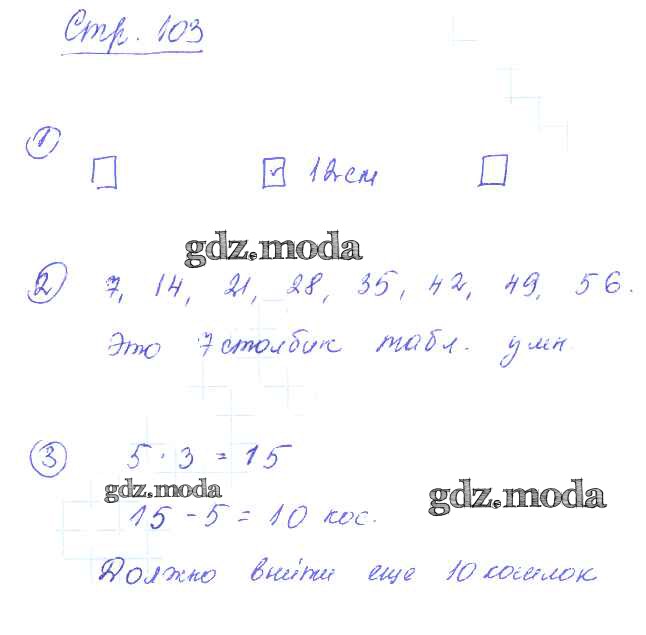 Стр. 103
1
12 см
gdz.moda
2 7, 14, 21, 28, 35, 42, 49, 56.
Это 7 столбик табл. умн.
3 5 · 3 = 15
gdz.moda
15 - 5 = 10 кос.
gdz.moda
Должно выйти еще 10 косилок